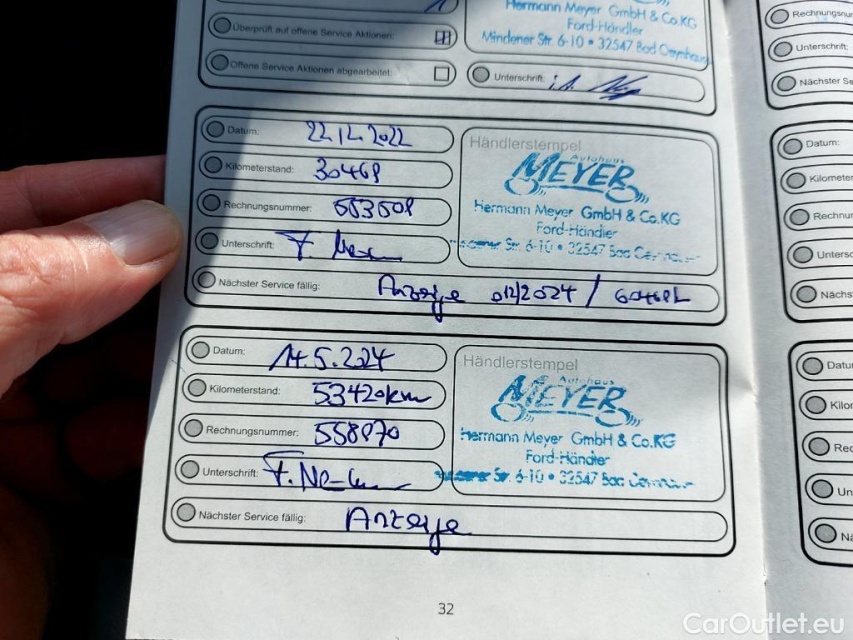 Hermann Meyer GmbH & Co.KG
Ford-Händler
Mindener Str. 6-10 • 32547 Bad Oeynhausen
Überprüft auf offene Service Aktionen:
Offene Service Aktionen abgearbeitet:
Unterschrift:
Datum: 22.12.2022
Kilometerstand: 30468
Rechnungsnummer: 553508
Unterschrift:
Nächster Service fällig: Anzeige 012/2024 / 60468
Händlerstempel
Autohaus
MEYER
Hermann Meyer GmbH & Co.KG
Ford-Händler
Str. 6-10 • 32547 Bad
Datum: 14.5.2024
Kilometerstand: 53420km
Rechnungsnummer: 558870
Unterschrift:
Nächster Service fällig: Anzeige
Händlerstempel
Autohaus
MEYER
Hermann Meyer GmbH & Co.KG
Ford-Händler
Str. 6-10 • 32547 Bad
32
Rechnungsnu
Unterschrift:
Nächster Se
Datum:
Kilometer
Rechnu
Unters
Nächs
Datu
Kilo
Rec
Un
Nä
CarOutlet.eu